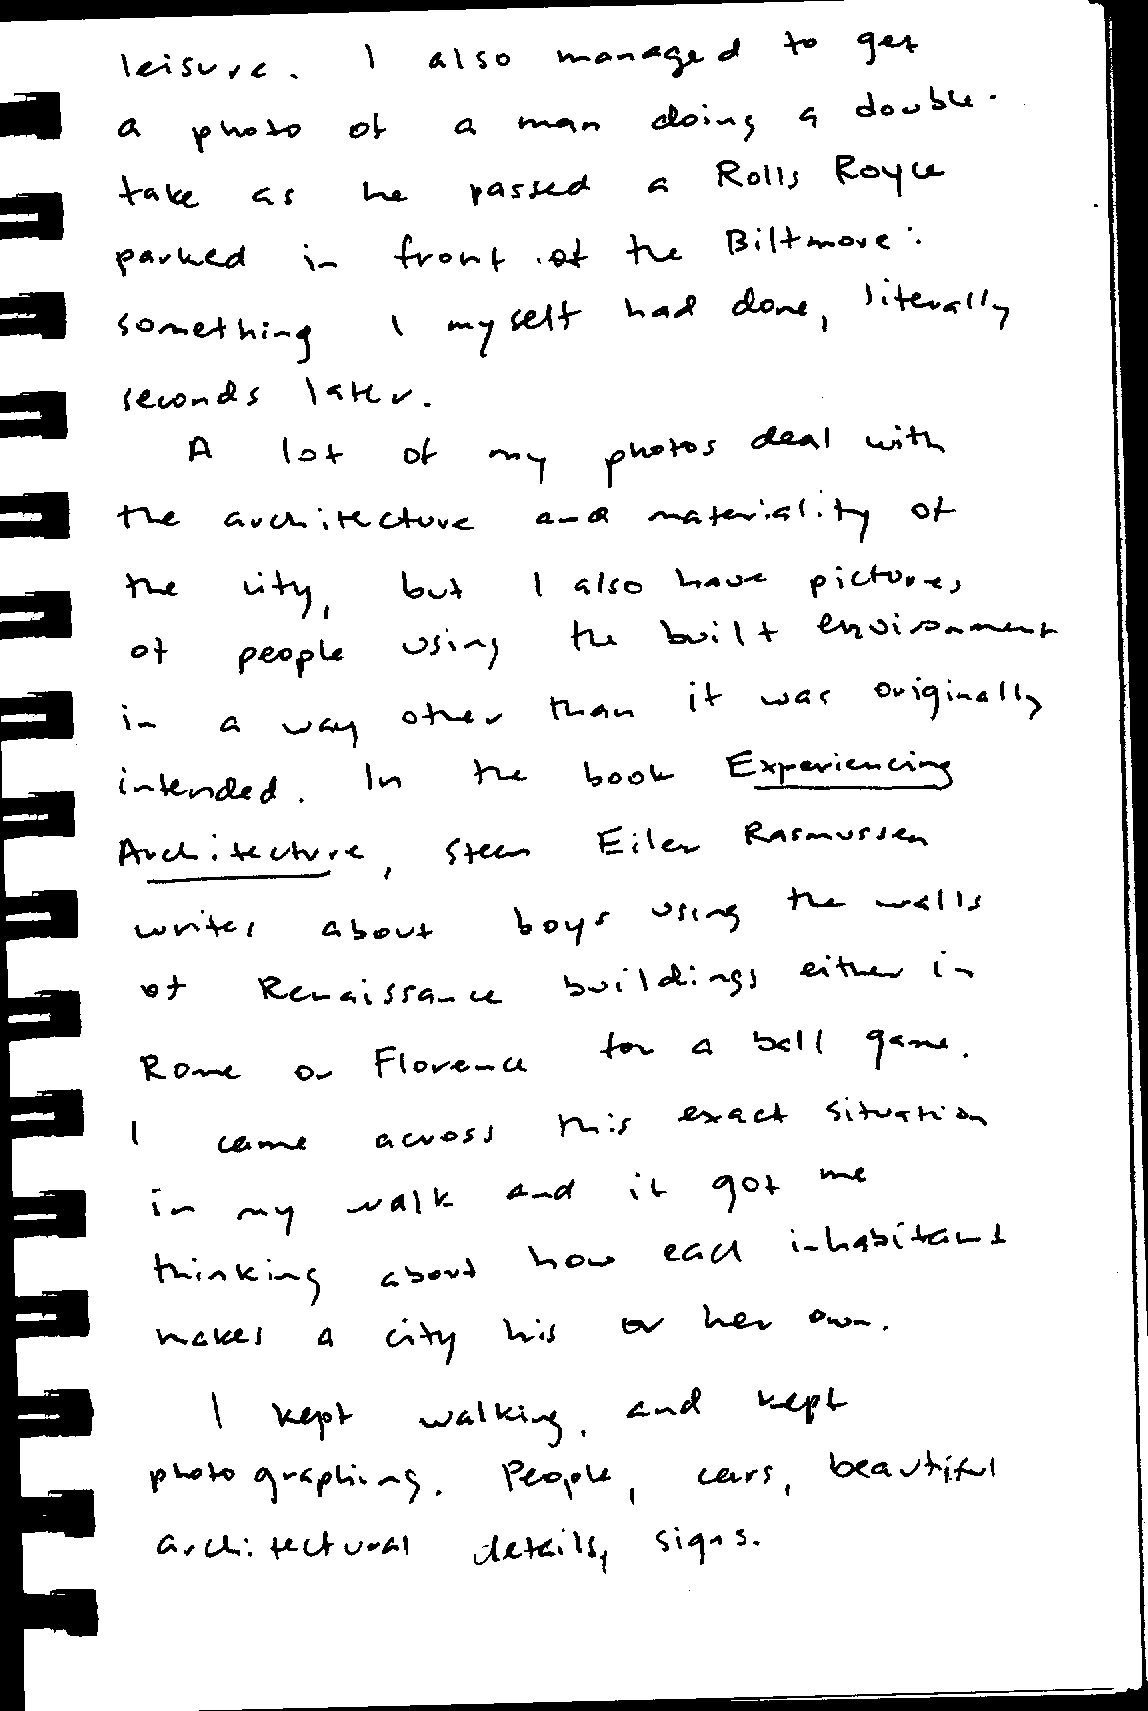 leisure. I also managed to get
a photo of a man doing a double-
take as he passed a Rolls Royce
parked in front of the Biltmore:
something I myself had done, literally
seconds later.
A lot of my photos deal with
the architecture and materiality of
the city, but I also have pictures
of people using the built environment
in a way other than it was originally
intended. In the book Experiencing
Architecture, Steen Eiler Rasmussen
writes about boys using the walls
of Renaissance buildings either in
Rome or Florence for a ball game.
I came across this exact situation
in my walk and it got me
thinking about how each inhabitant
makes a city his or her own.
I kept walking, and kept
photographing. People, cars, beautiful
architectural details, signs.